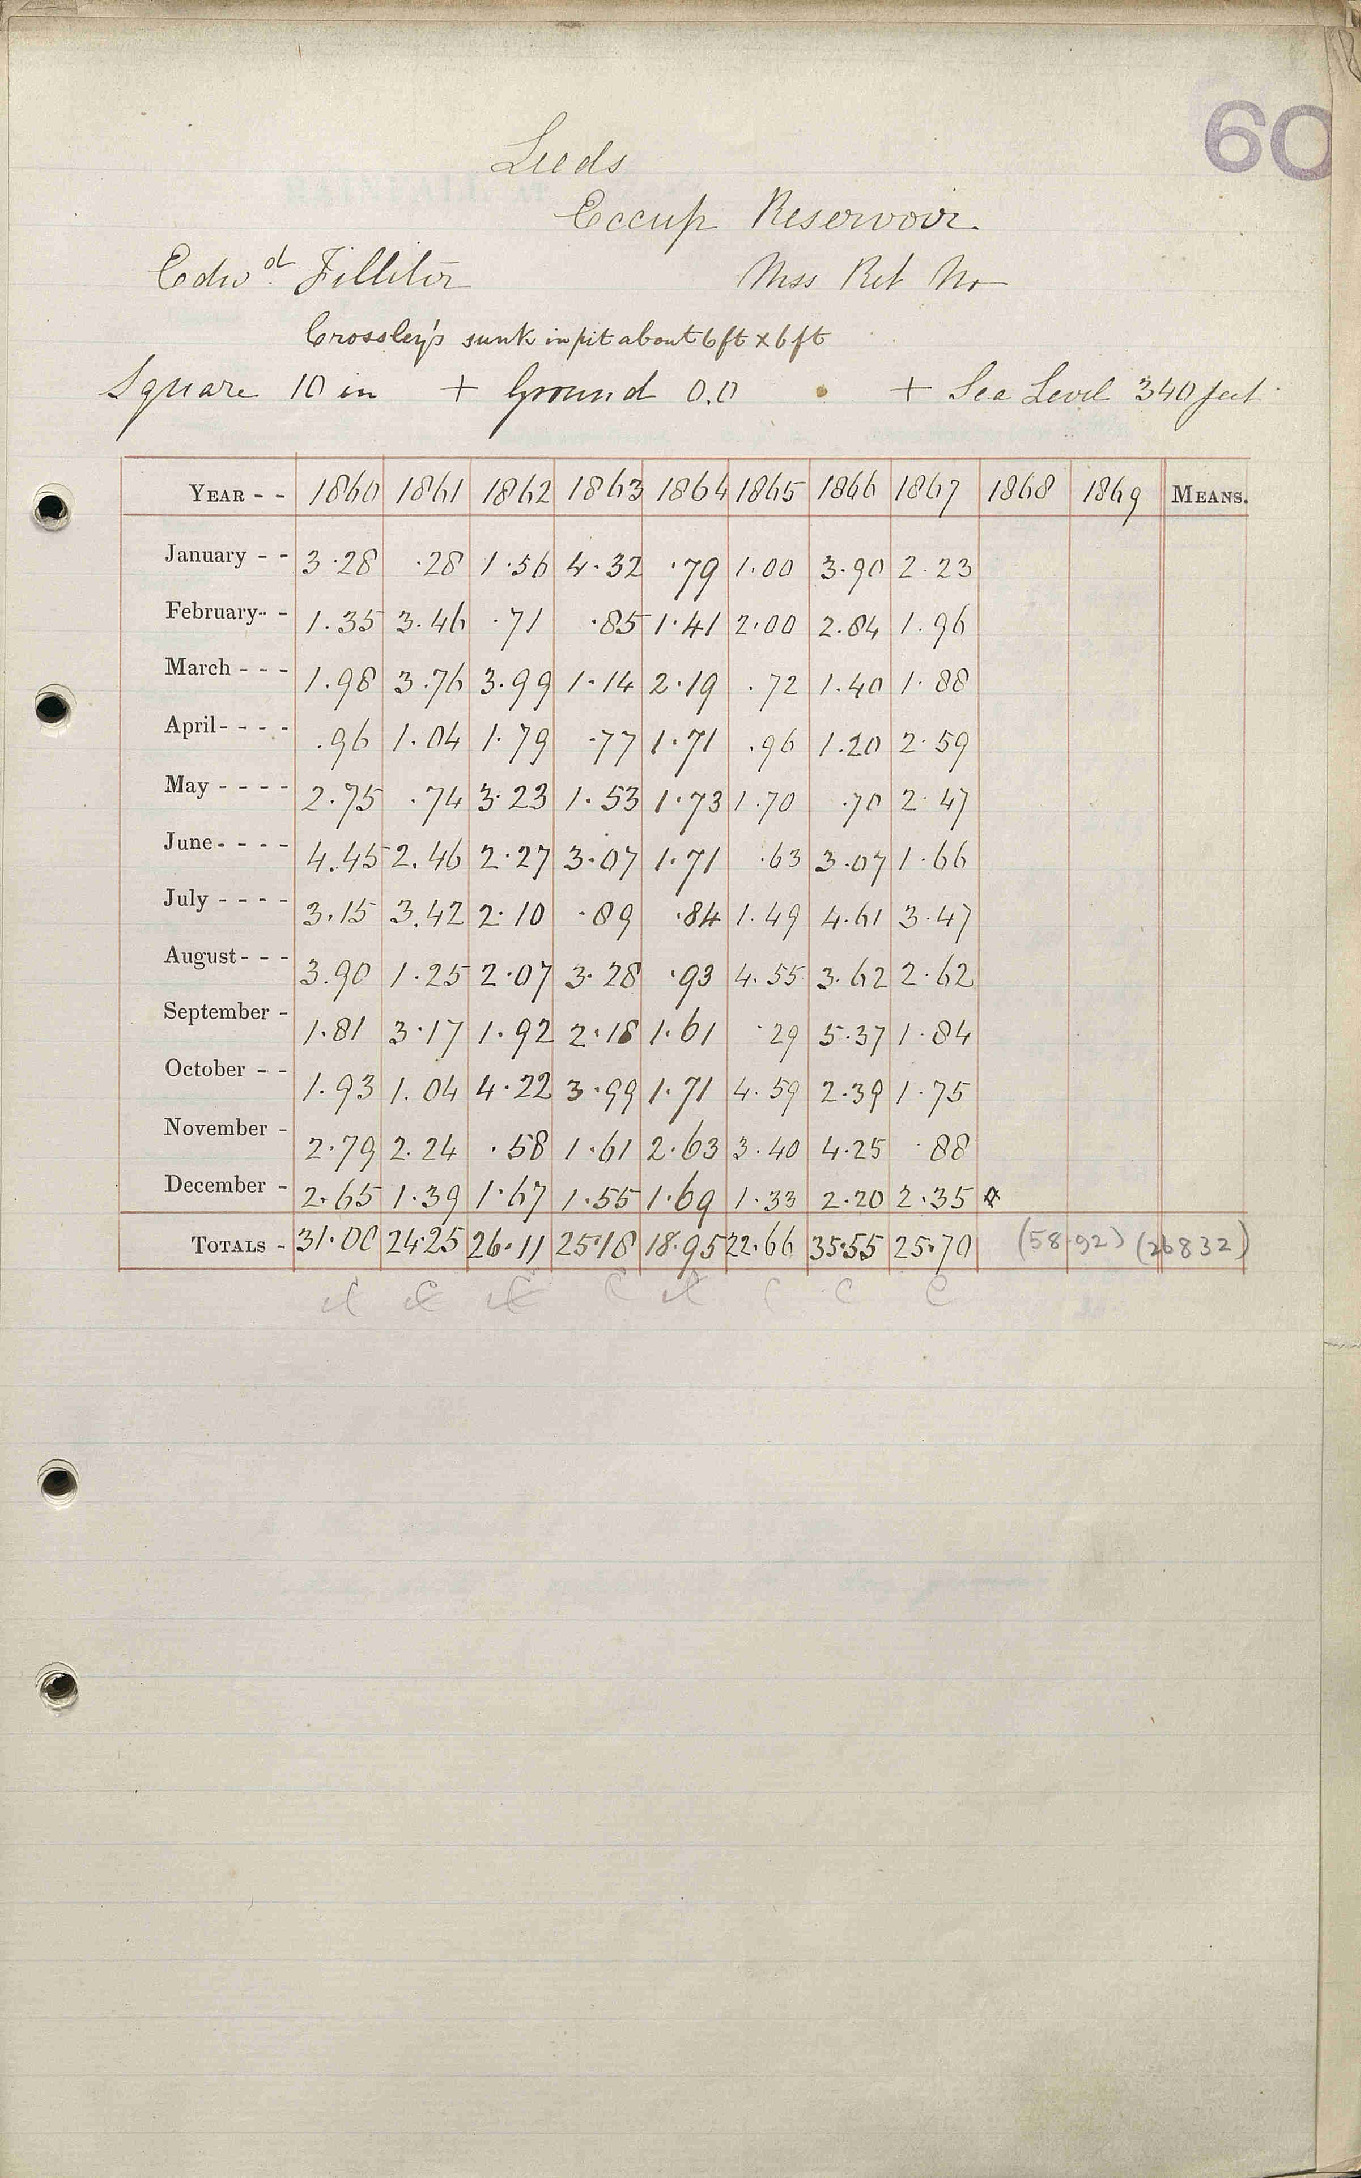 60
Leeds
Eccup Reservoir.
Edwd. Filliter Mss Ret No
Crossley's sunk in pit about 6ft x 6ft
Square 10 in + Ground 0.0 + Sea Level 340 feet
YEAR - - 1860 1861 1862 1863 1864 1865 1866 1867 1868 1869 MEANS.
January - - 3.28 .28 1.56 4.32 .79 1.00 3.90 2.23
February - - 1.35 3.46 .71 .85 1.41 2.00 2.84 1.96
March - - - 1.98 3.76 3.99 1.14 2.19 .72 1.40 1.88
April - - - - .96 1.04 1.79 .77 1.71 .96 1.20 2.59
May - - - - 2.75 .74 3.23 1.53 1.73 1.70 .70 2.47
June - - - - 4.45 2.46 2.27 3.07 1.71 .63 3.07 1.66
July - - - - 3.15 3.42 2.10 .89 .84 1.49 4.61 3.47
August - - - 3.90 1.25 2.07 3.28 .93 4.55 3.62 2.62
September - 1.81 3.17 1.92 2.18 1.61 .29 5.37 1.84
October - - 1.93 1.04 4.22 3.99 1.71 4.59 2.39 1.75
November - 2.79 2.24 .58 1.61 2.63 3.40 4.25 .88
December - 2.65 1.39 1.67 1.55 1.69 1.33 2.20 2.35
TOTALS - 31.00 24.25 26.11 25.18 18.95 22.66 35.55 25.70 (58.92) (26832)
C C C C C C C C